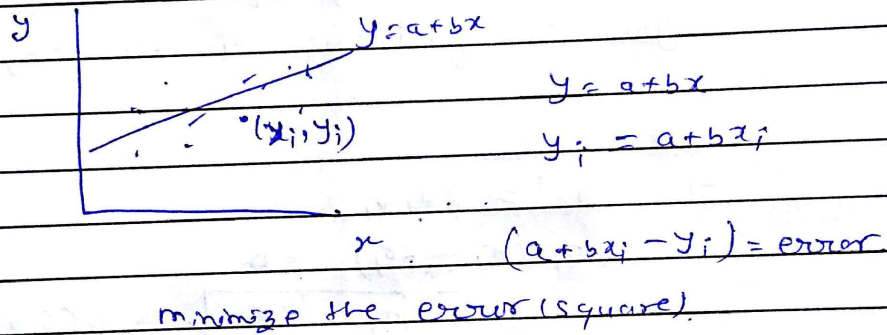 y
y = a + bx
y = a + bx
(xi, yi)
yi = a + bxi
x
(a + bxi - yi) = error
minimize the error (square).